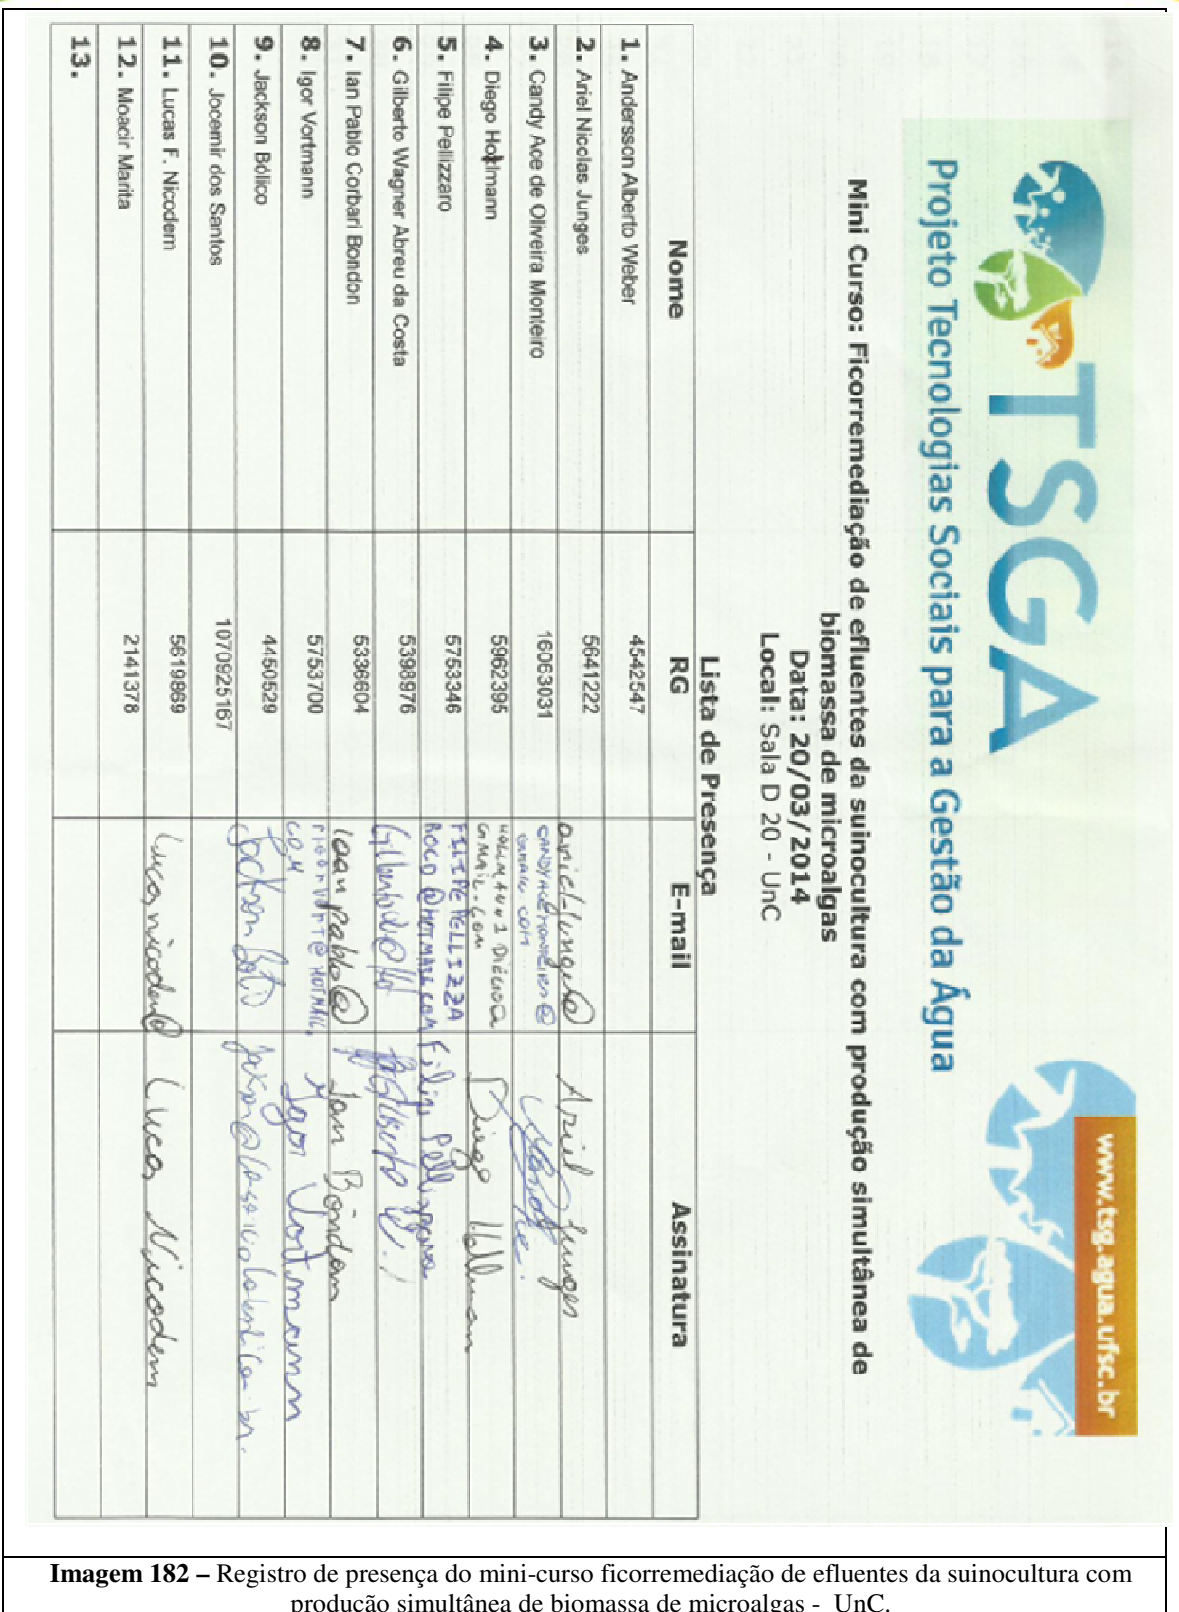 TSGA
Projeto Tecnologias Sociais para a Gestão da Água
www.tsg.agua.ufsc.br
Mini Curso: Ficorremediação de efluentes da suinocultura com produção simultânea de
biomassa de microalgas
Data: 20/03/2014
Local: Sala D 20 - UnC
Lista de Presença
Nome RG E-mail Assinatura
1. Andersson Alberto Weber 4542547
2. Ariel Nicolas Junges 5641222 Ariel Junges
3. Candy Ace de Oliveira Monteiro 16063031
4. Diego Holdmann 5962395 Diego
5. Filipe Pellizzaro 5753346 FILIPEPELLIZZA
ROGO@HOTMAIL.COM Filipe Pellizzaro
6. Gilberto Wagner Abreu da Costa 5398976
7. Ian Pablo Corbari Bondon 5336604 ioanpablo@ Ian Bondan
8. Igor Vortmann 5753700 Igor Vortmann
9. Jackson Bólico 4450529
10. Jocemir dos Santos 1070925167
11. Lucas F. Nicodem 5619869 Lucasnicodem@ Lucas Nicodem
12. Moacir Marita 2141378
13.
Imagem 182 – Registro de presença do mini-curso ficorremediação de efluentes da suinocultura com
produção simultânea de biomassa de microalgas - UnC.